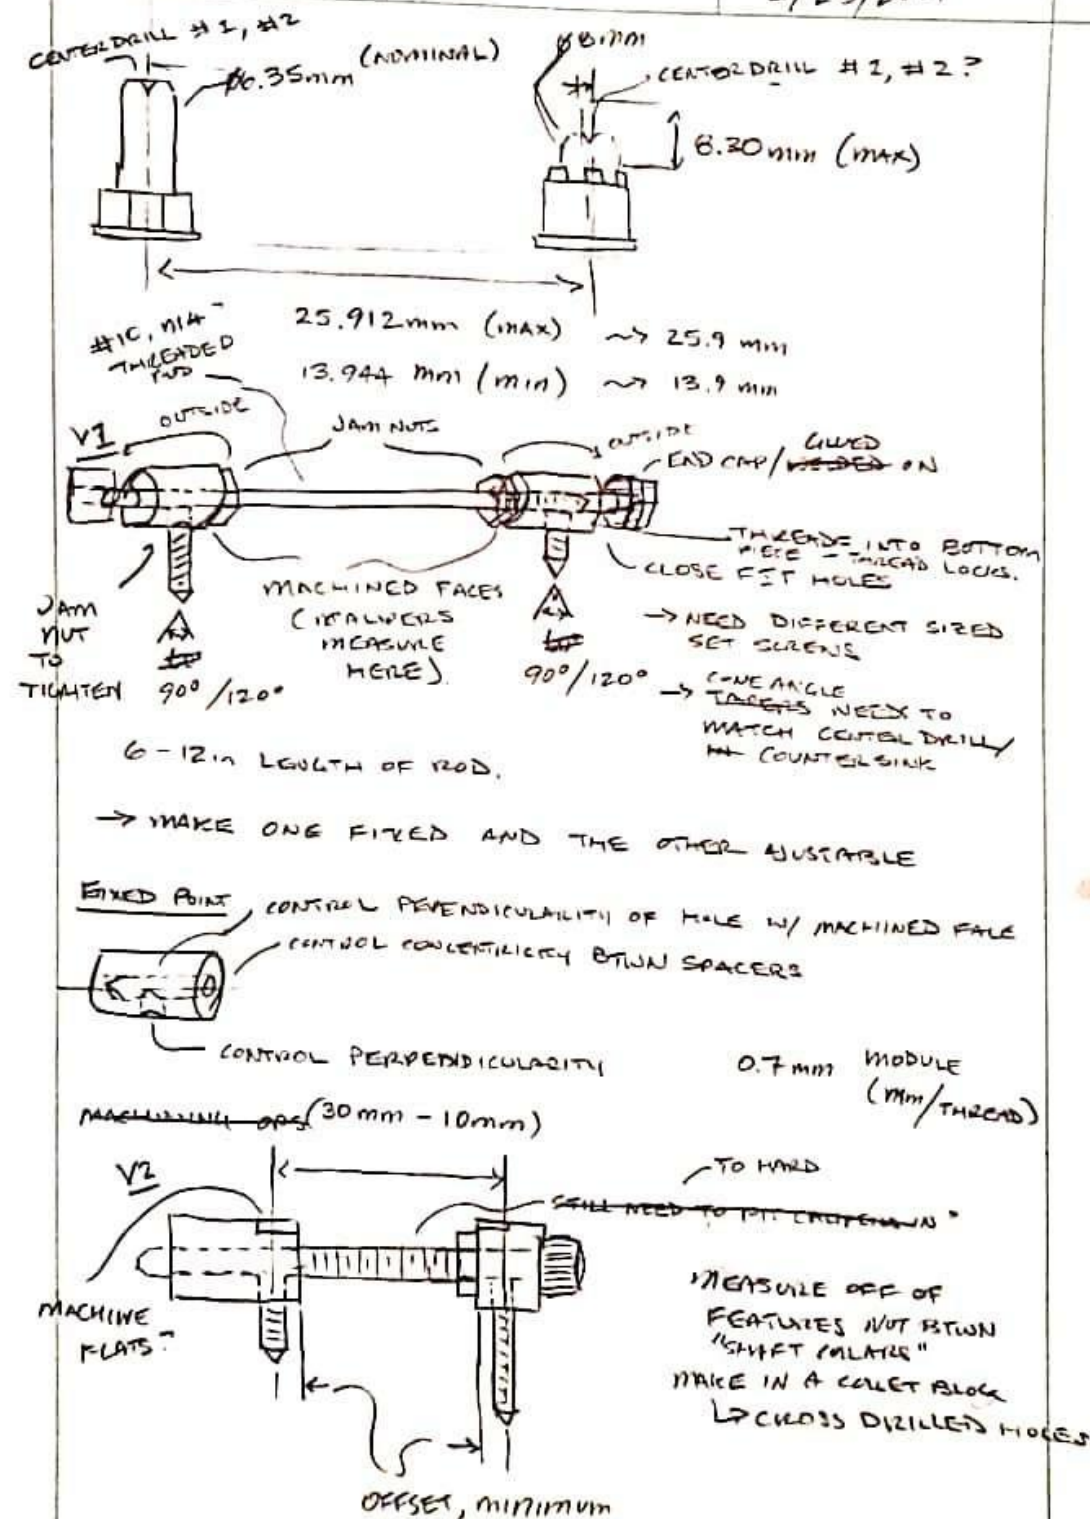 CENTERDRILL #1, #2
(NOMINAL)
Ø6.35mm
Ø8mm
CENTERDRILL #1, #2?
8.30mm (MAX)
25.912mm (MAX) ~> 25.9 mm
13.944 mm (min) ~> 13.9 mm
THREADED
V1
OUTSIDE
JAM NUTS
OUTSIDE
GLUED
END CAP/ ON
THREADS INTO BOTTOM
PIECE - THREAD LOCKS.
CLOSE FIT HOLES
MACHINED FACES
MEASURE
HERE)
JAM
NUT
TO
TIGHTEN
90°/120°
90°/120°
→ NEED DIFFERENT SIZED
SET SCREWS
→ CONE ANGLE
NEED TO
MATCH CENTERDRILL/
COUNTERSINK
6-12in LENGTH OF ROD.
→ MAKE ONE FIXED AND THE OTHER AJUSTABLE
FIXED POINT
CONTROL PEPENDICULAILITY OF HOLE W/ MACHINED FACE
CONTROL CONCENTRICITY BTWN SPACERS
CONTROL PERPENDICULARITY
0.7mm MODULE
(mm/THREAD)
MACHINING OPS (30mm - 10mm)
V2
TO HARD
STILL NEED TO
MACHINE
FLATS?
MEASURE OFF OF
FEATURES NOT BTWN
"SHAFT COLLARS"
MAKE IN A COLLET BLOCK
↳ CROSS DRILLED HOLES
OFFSET, MINIMUM